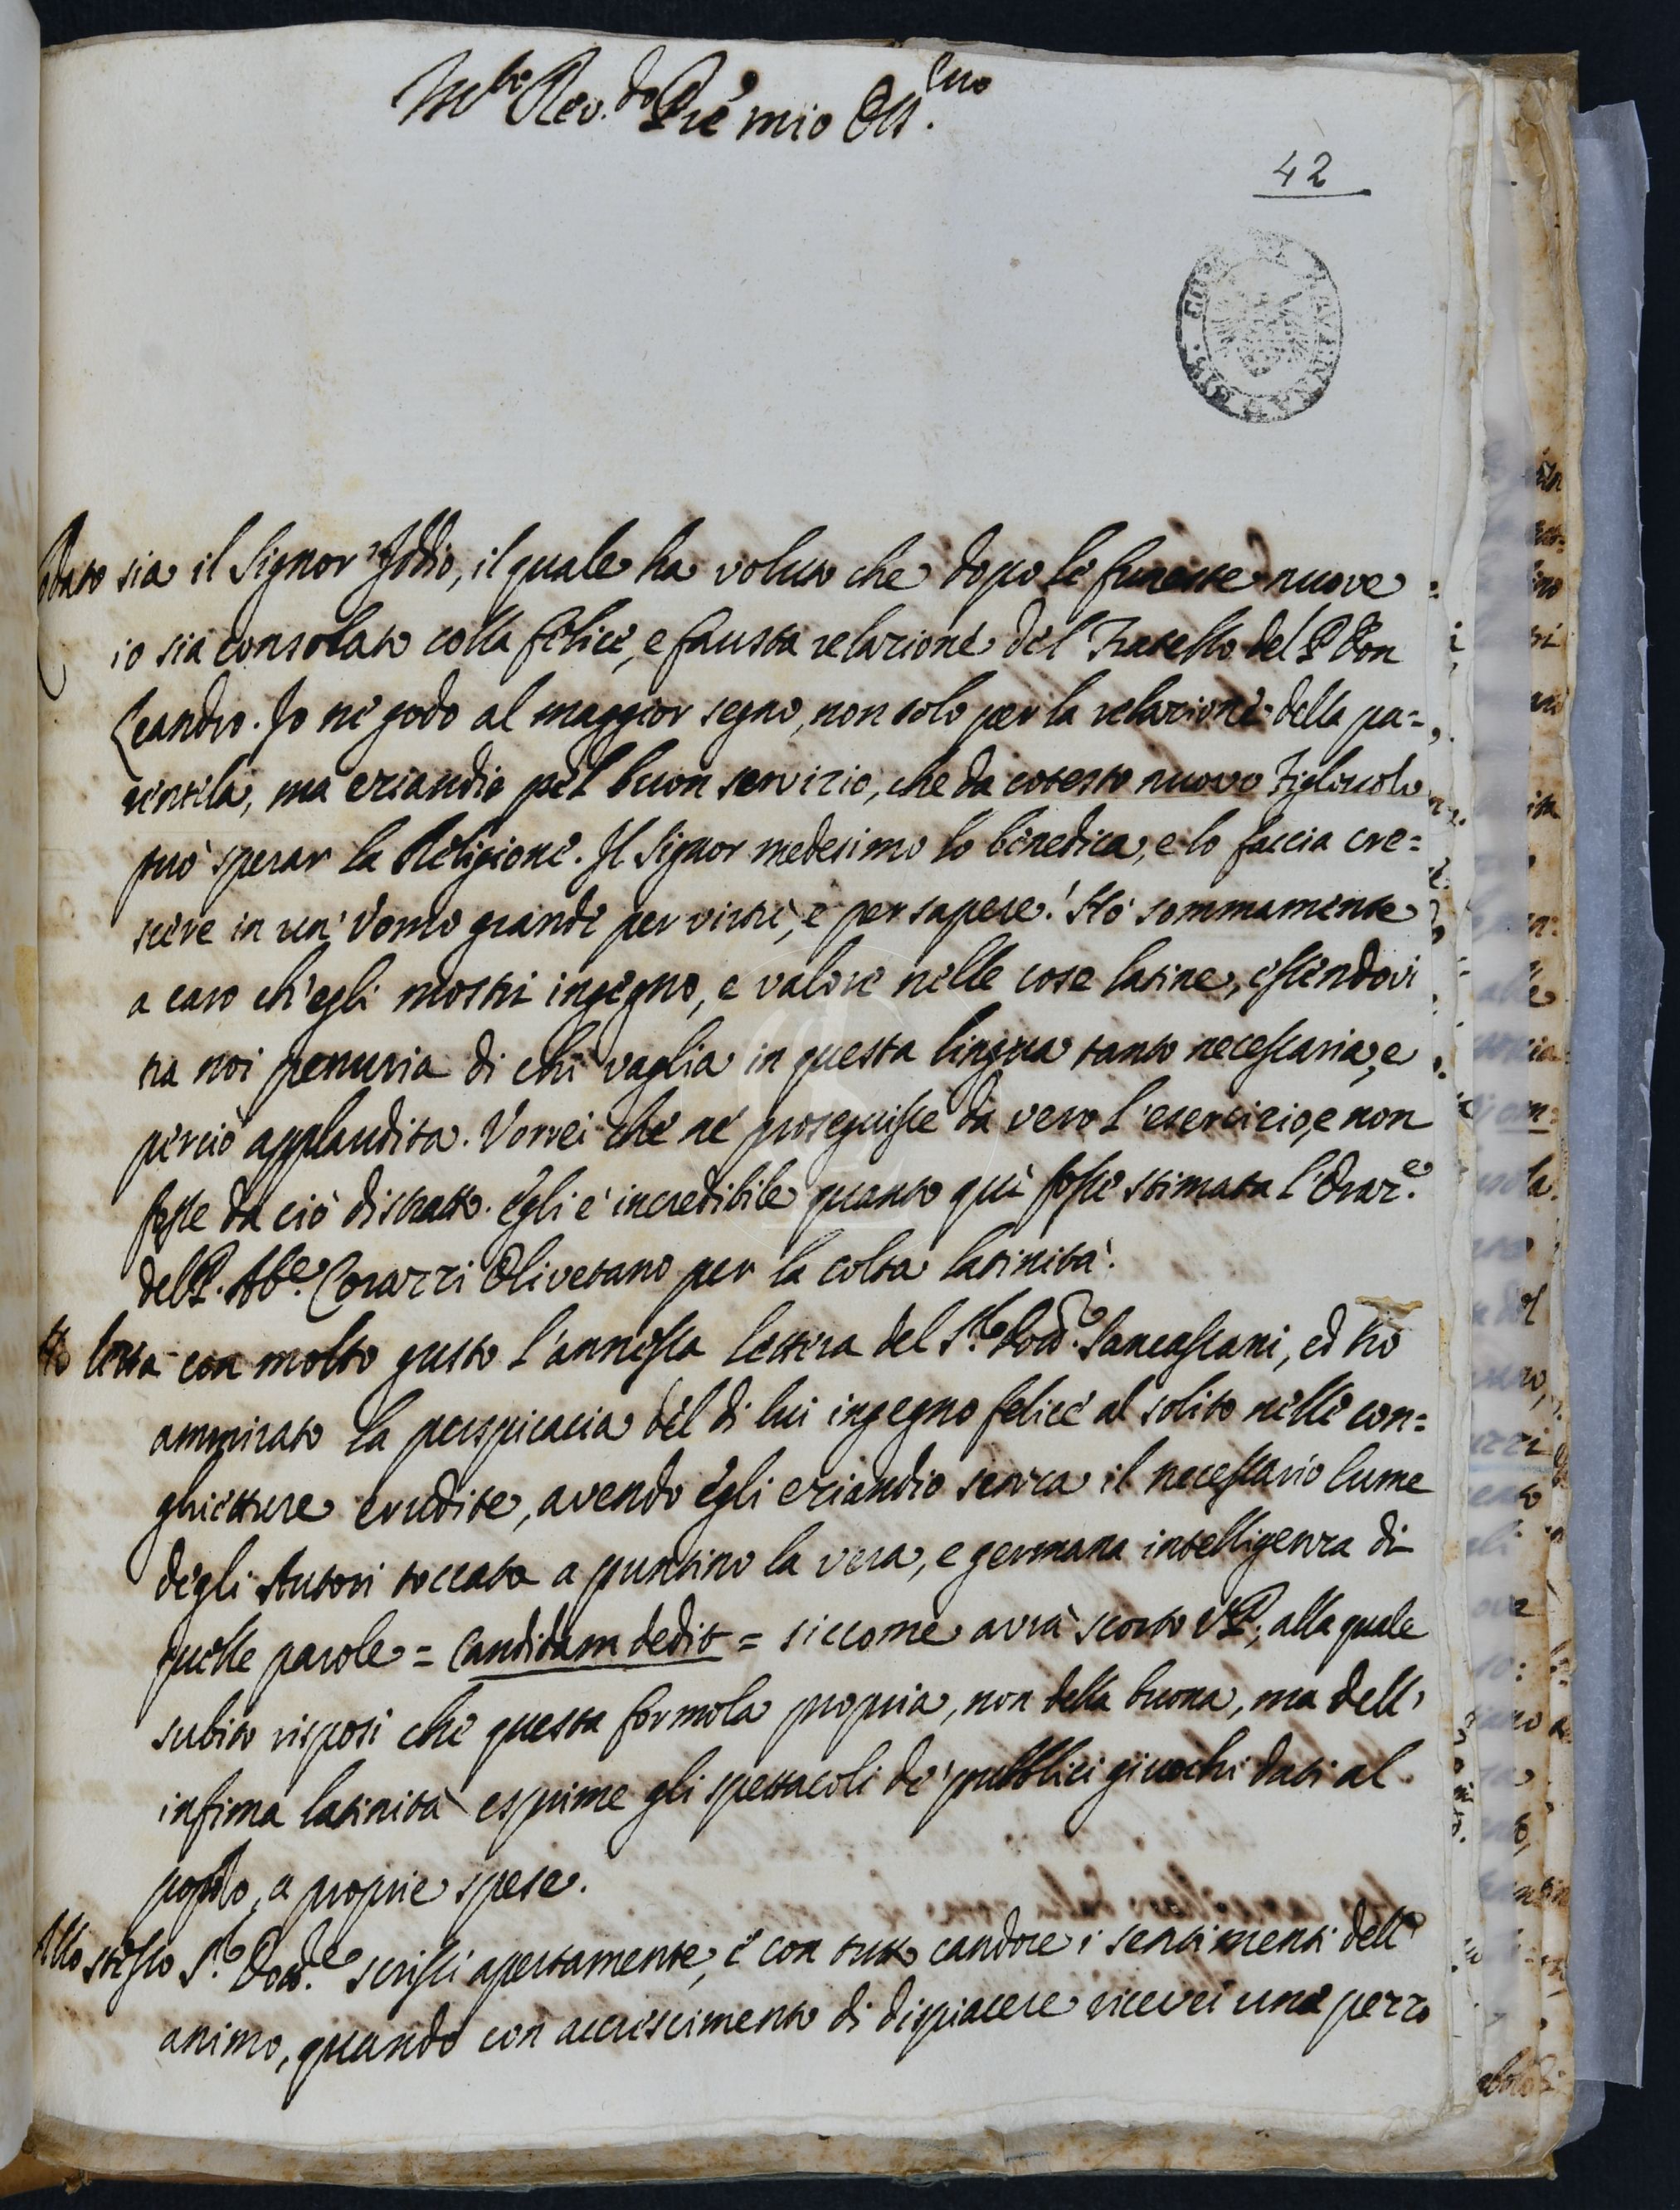 M.to Rev.do Pre mio Oss.mo
42
Lodato sia il Signor Iddio, il quale ha voluto che dopo le funeste nuove
io sia consolato colla felice, e fausta relazione del Fratello del P. Don
Leandro. Io ne godo al maggior segno, non solo per la relazione della pa=
rentela, ma eziandio pel buon servizio, che da cotesto nuovo Figliuolo
può sperar la Religione. Il Signor medesimo lo benedica, e lo faccia cre=
scere in un' Uomo grande per virtù, e per sapere! Hò sommamente
a caro ch'egli mostri ingegno, e valore nelle cose latine, essendovi
tra noi penuria di chi vaglia in questa lingua tanto necessaria, e
perciò applaudita. Vorrei che ne proseguisse da vero l'esercizio, e non
fosse da ciò distratto. Egli è incredibile quanto quì fosse stimata l'Oraz.e
del P. Ab.e Corazzi Olivetano per la colta latinità.
Ho letta con molto gusto l'annessa lettera del S.r Dott.e Lancassani, ed hò
ammirato la perspicacia del di lui ingegno felice al solito nelle con=
ghietture erudite, avendo egli eziandio senza il necessario lume
degli Autori toccata a puntino la vera, e germana intelligenza di
quelle parole = Candidam dedit = siccome avrà scorto V.P., alla quale
subito risposi che questa formola propria, non della buona, ma dell'
infima latinità esprime gli spettacoli de' pubblici giuochi dati al
popolo, a proprie spese.
Allo stesso S.r Dott.e scrissi apertamente, e con tutto candore i sentimenti dell'
animo, quando con accrescimento di dispiacere ricevei una perzo